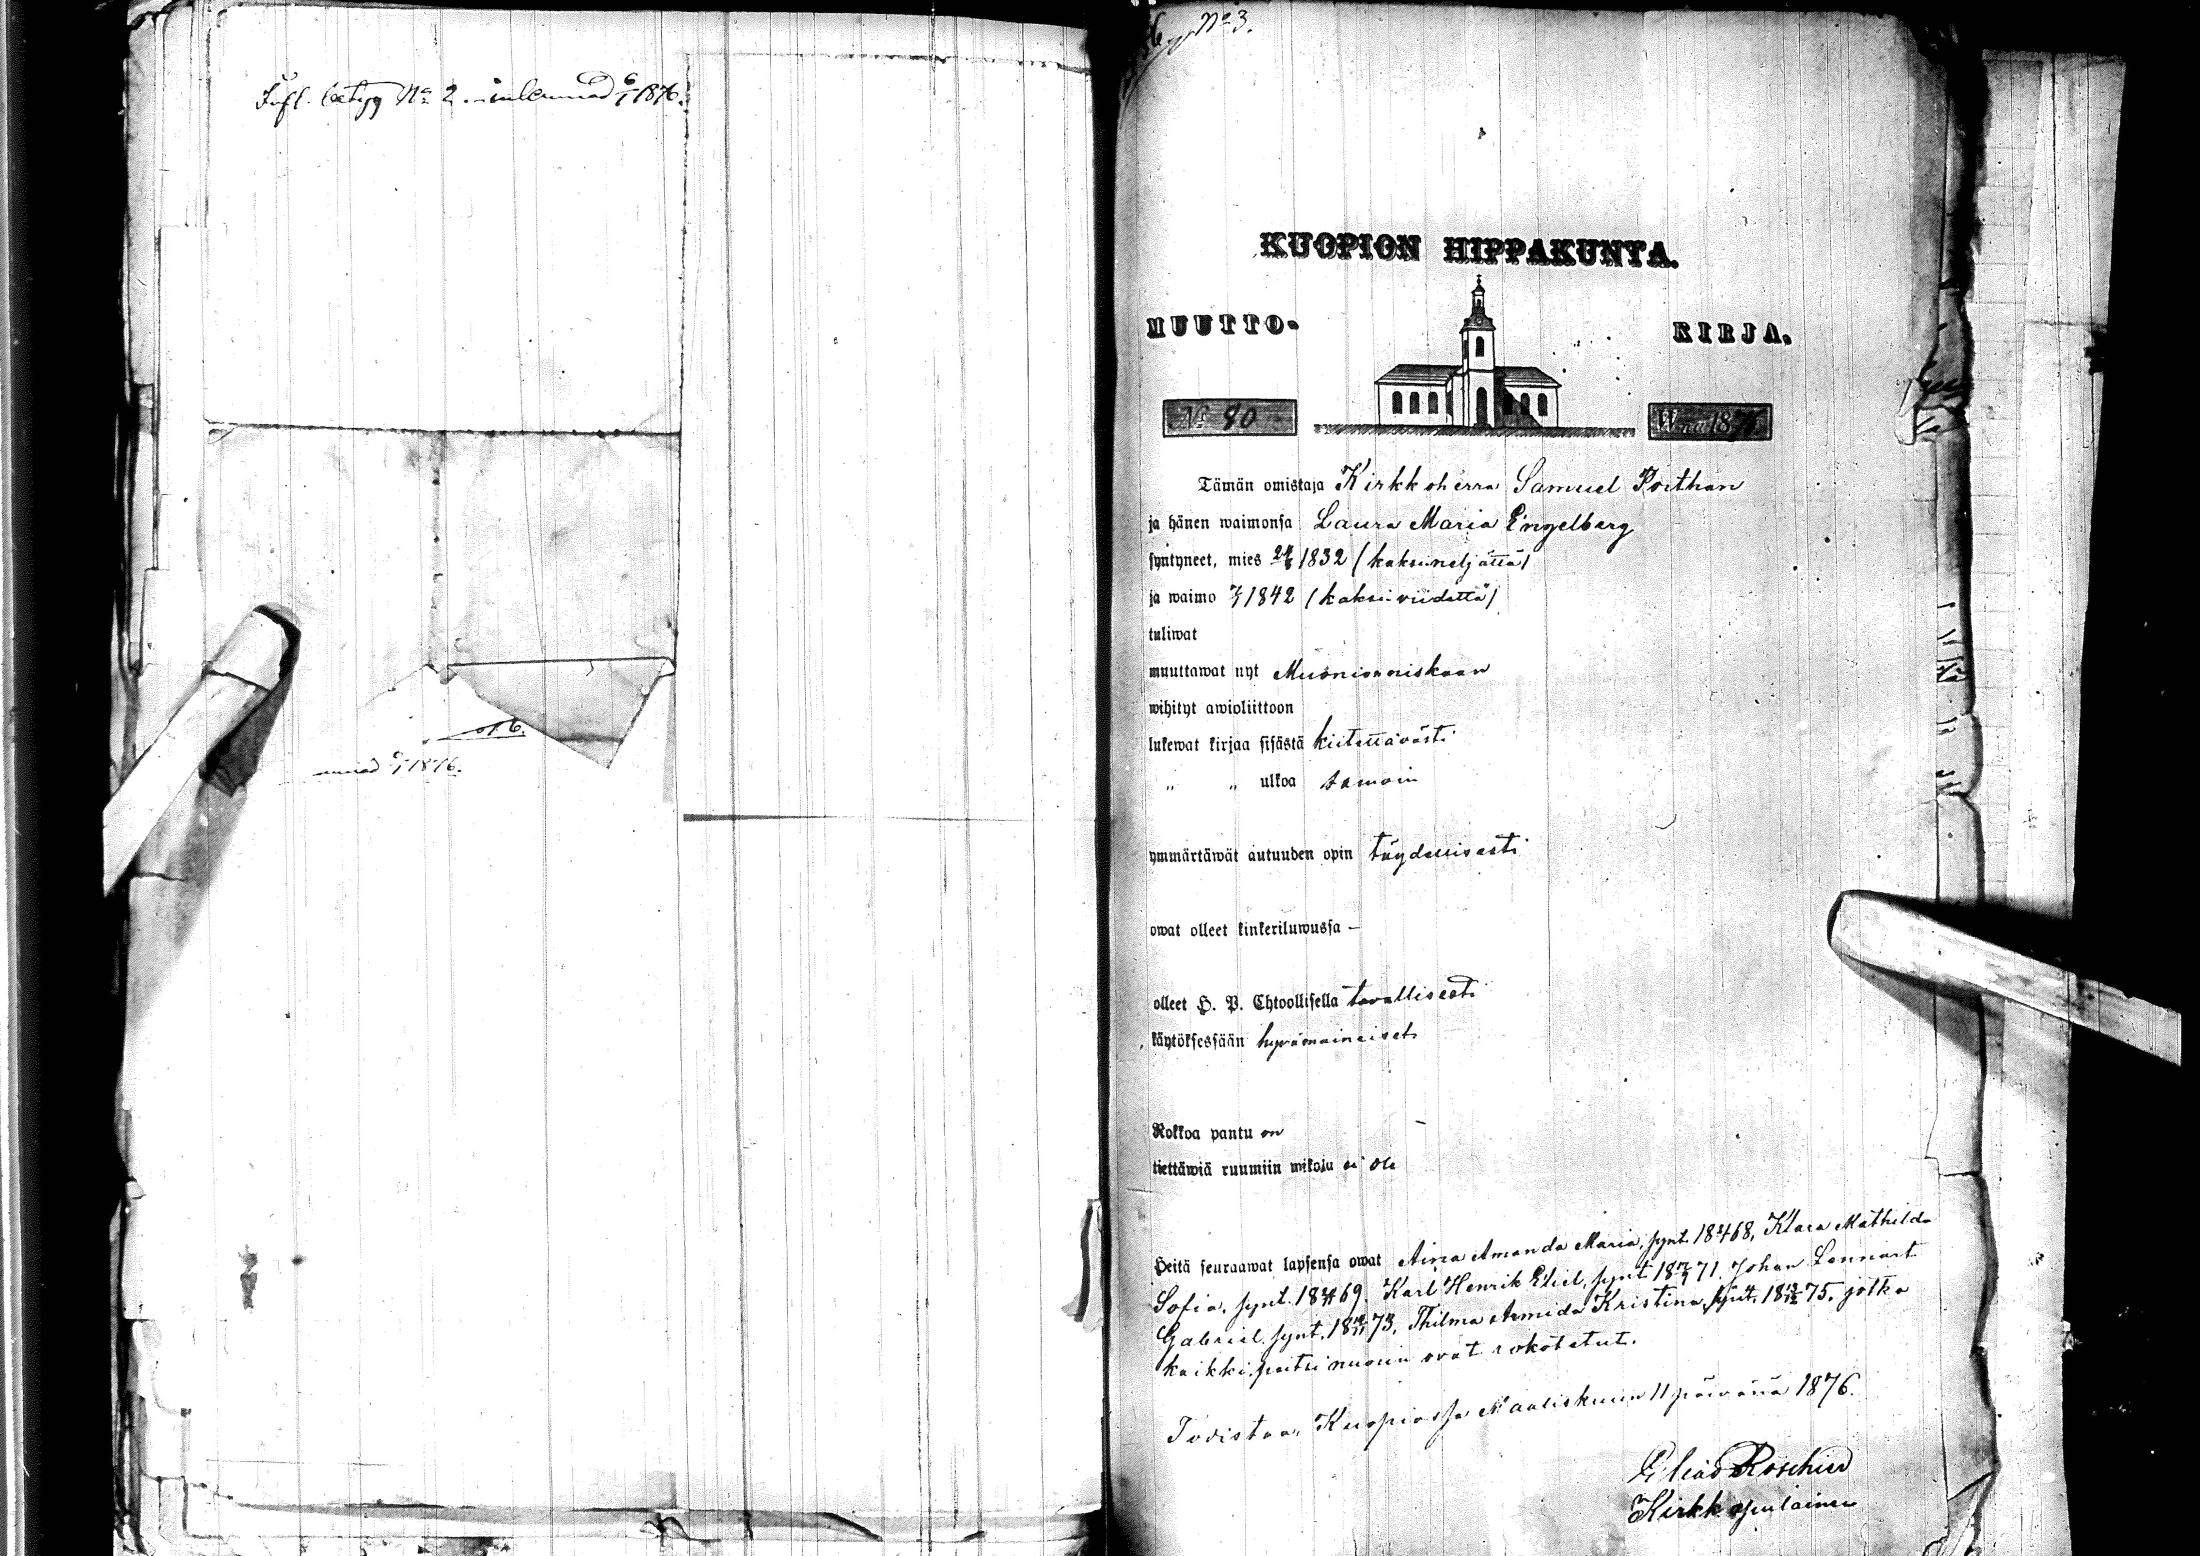 betyg No 2. inlemnad 6/5 1876.
1876.
No 3.
KUOPION HIPPAKUNTA.
MUUTTO- KIRJA.
No 90 W:na 1876.
Tämän omistaja Kirkkoherra Samuel Porthan
ja hänen waimonsa Laura Maria Engelberg
syntyneet, mies 1832 (kaksineljättä)
ja waimo 1842 (kaksiviidettä)
tuliwat
muuttawat nyt Muonionniskaan
wihityt awioliittoon
lukewat kirjaa sisästä kiitettävästi
„ „ ulkoa samoin
ymmärtäwät autuuden opin täydellisesti
owat olleet kinkeriluwussa —
olleet H. P. Ehtoollisella tavallisesti
käytöksessään hyvämaineiset
Rokkoa pantu on
tiettäwiä ruumiin wikoja ei ole
Heitä seuraawat lapsensa owat Aina Amanda Maria, synt. 18 68, Klara Mathilda
Sofia, synt. 18 69. Karl Henrik Eliel, synt. 18 71. Johan Lennart
Gabriel synt. 18 73, Thilma Armida Kristina, synt. 18 75. jotka
kaikki, paitsi nuorin ovat rokotetut.
Todistaa, Kuopiossa Maaliskuun 11 päivänä 1876.
Elias Roschier
Kirkkoapulainen